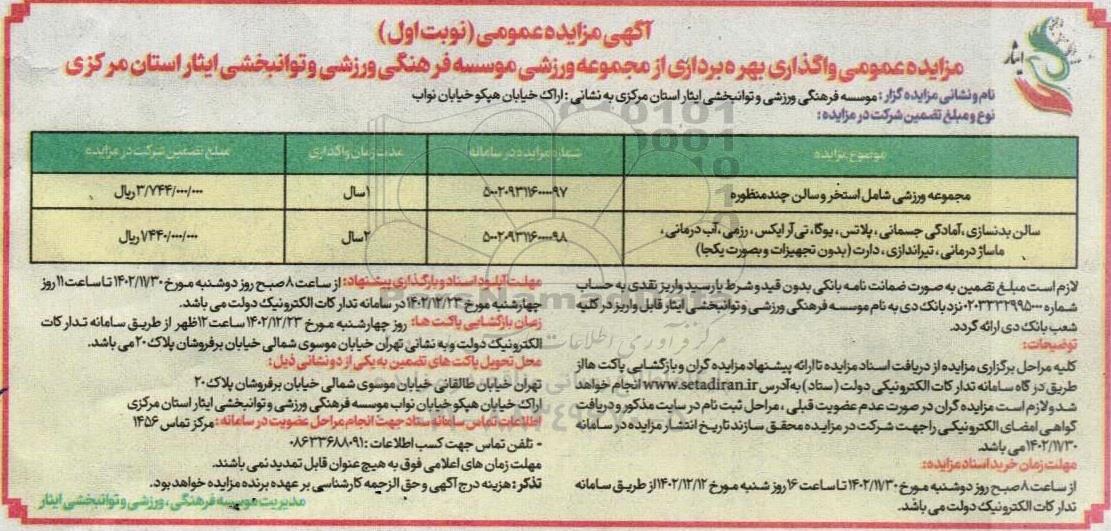 آگهی مزایده عمومی (نوبت اول)
مزایده عمومی واگذاری بهره برداری از مجموعه ورزشی موسسه فرهنگی ورزشی و توانبخشی ایثار استان مرکزی
ایثار
نام و نشانی مزایده گزار : موسسه فرهنگی ورزشی و توانبخشی ایثار استان مرکزی به نشانی : اراک خیابان هپکو خیابان نواب
نوع و مبلغ تضمین شرکت در مزایده :
موضوع مزایده شماره مزایده در سامانه مدت زمان واگذاری مبلغ تضمین شرکت در مزایده
مجموعه ورزشی شامل استخر و سالن چند منظوره ۵۰۰۲۰۹۳۱۱۶۰۰۰۰۹۷ ۱ سال ۳/۷۴۴/۰۰۰/۰۰۰ ریال
سالن بدنسازی ، آمادگی جسمانی ، پلاتس ، یوگا، تی آر ایکس ، رزمی ، آب درمانی ، ۵۰۰۲۰۹۳۱۱۶۰۰۰۰۹۸ ۲ سال ۷۴۴۰/۰۰۰/۰۰۰ ریال
ماساژ درمانی ، تیراندازی ، دارت (بدون تجهیزات و بصورت یکجا)
لازم است مبلغ تضمین به صورت ضمانت نامه بانکی بدون قید و شرط یا رسید واریز نقدی به حساب
شماره ۰۲۰۳۳۳۲۹۹۵۰۰۰ نزد بانک دی به نام موسسه فرهنگی ورزشی و توانبخشی ایثار قابل واریز در کلیه
شعب بانک دی ارائه گردد.
توضیحات :
کلیه مراحل برگزاری مزایده از دریافت اسناد مزایده تا ارائه پیشنهاد مزایده گران و بازگشایی پاکت ها از
طریق درگاه سامانه تدارکات الکترونیکی دولت (ستاد) به آدرس www.setadiran.ir انجام خواهد
شد و لازم است مزایده گران در صورت عدم عضویت قبلی ، مراحل ثبت نام در سایت مذکور و دریافت
گواهی امضای الکترونیکی را جهت شرکت در مزایده محقق سازند تاریخ انتشار مزایده در سامانه
۱۴۰۲/۱۱/۳۰ می باشد.
مهلت زمان خرید اسناد مزایده :
از ساعت ۸ صبح روز دوشنبه مورخ ۱۴۰۲/۱۱/۳۰ تا ساعت ۱۶ روز شنبه مورخ ۱۴۰۲/۱۲/۱۲ از طریق سامانه
تدارکات الکترونیک دولت می باشد.
مهلت آپلود اسناد و بارگذاری پیشنهاد: از ساعت ۸ صبح روز دوشنبه مورخ ۱۴۰۲/۱۱/۳۰ تا ساعت ۱۱ روز
چهارشنبه مورخ ۱۴۰۲/۱۲/۲۳ در سامانه تدارکات الکترونیک دولت می باشد.
زمان بازگشایی پاکت ها : روز چهارشنبه مورخ ۱۴۰۲/۱۲/۲۳ ساعت ۱۲ ظهر از طریق سامانه تدارکات
الکترونیک دولت و به نشانی تهران خیابان موسوی شمالی خیابان برفروشان پلاک ۲۰ می باشد.
محل تحویل پاکت های تضمین به یکی از دو نشانی ذیل :
تهران خیابان طالقانی خیابان موسوی شمالی خیابان برفروشان پلاک ۲۰
اراک خیابان هپکو خیابان نواب موسسه فرهنگی ورزشی و توانبخشی ایثار استان مرکزی
اطلاعات تماس سامانه ستاد جهت انجام مراحل عضویت در سامانه : مرکز تماس ۱۴۵۶
- تلفن تماس جهت کسب اطلاعات : ۰۸۶۳۳۶۸۸۰۹۱
مهلت زمان های اعلامی فوق به هیچ عنوان قابل تمدید نمی باشند.
تذکر : هزینه درج آگهی و حق الزحمه کارشناسی بر عهده برنده مزایده خواهد بود.
مدیریت موسسه فرهنگی ، ورزشی و توانبخشی ایثار